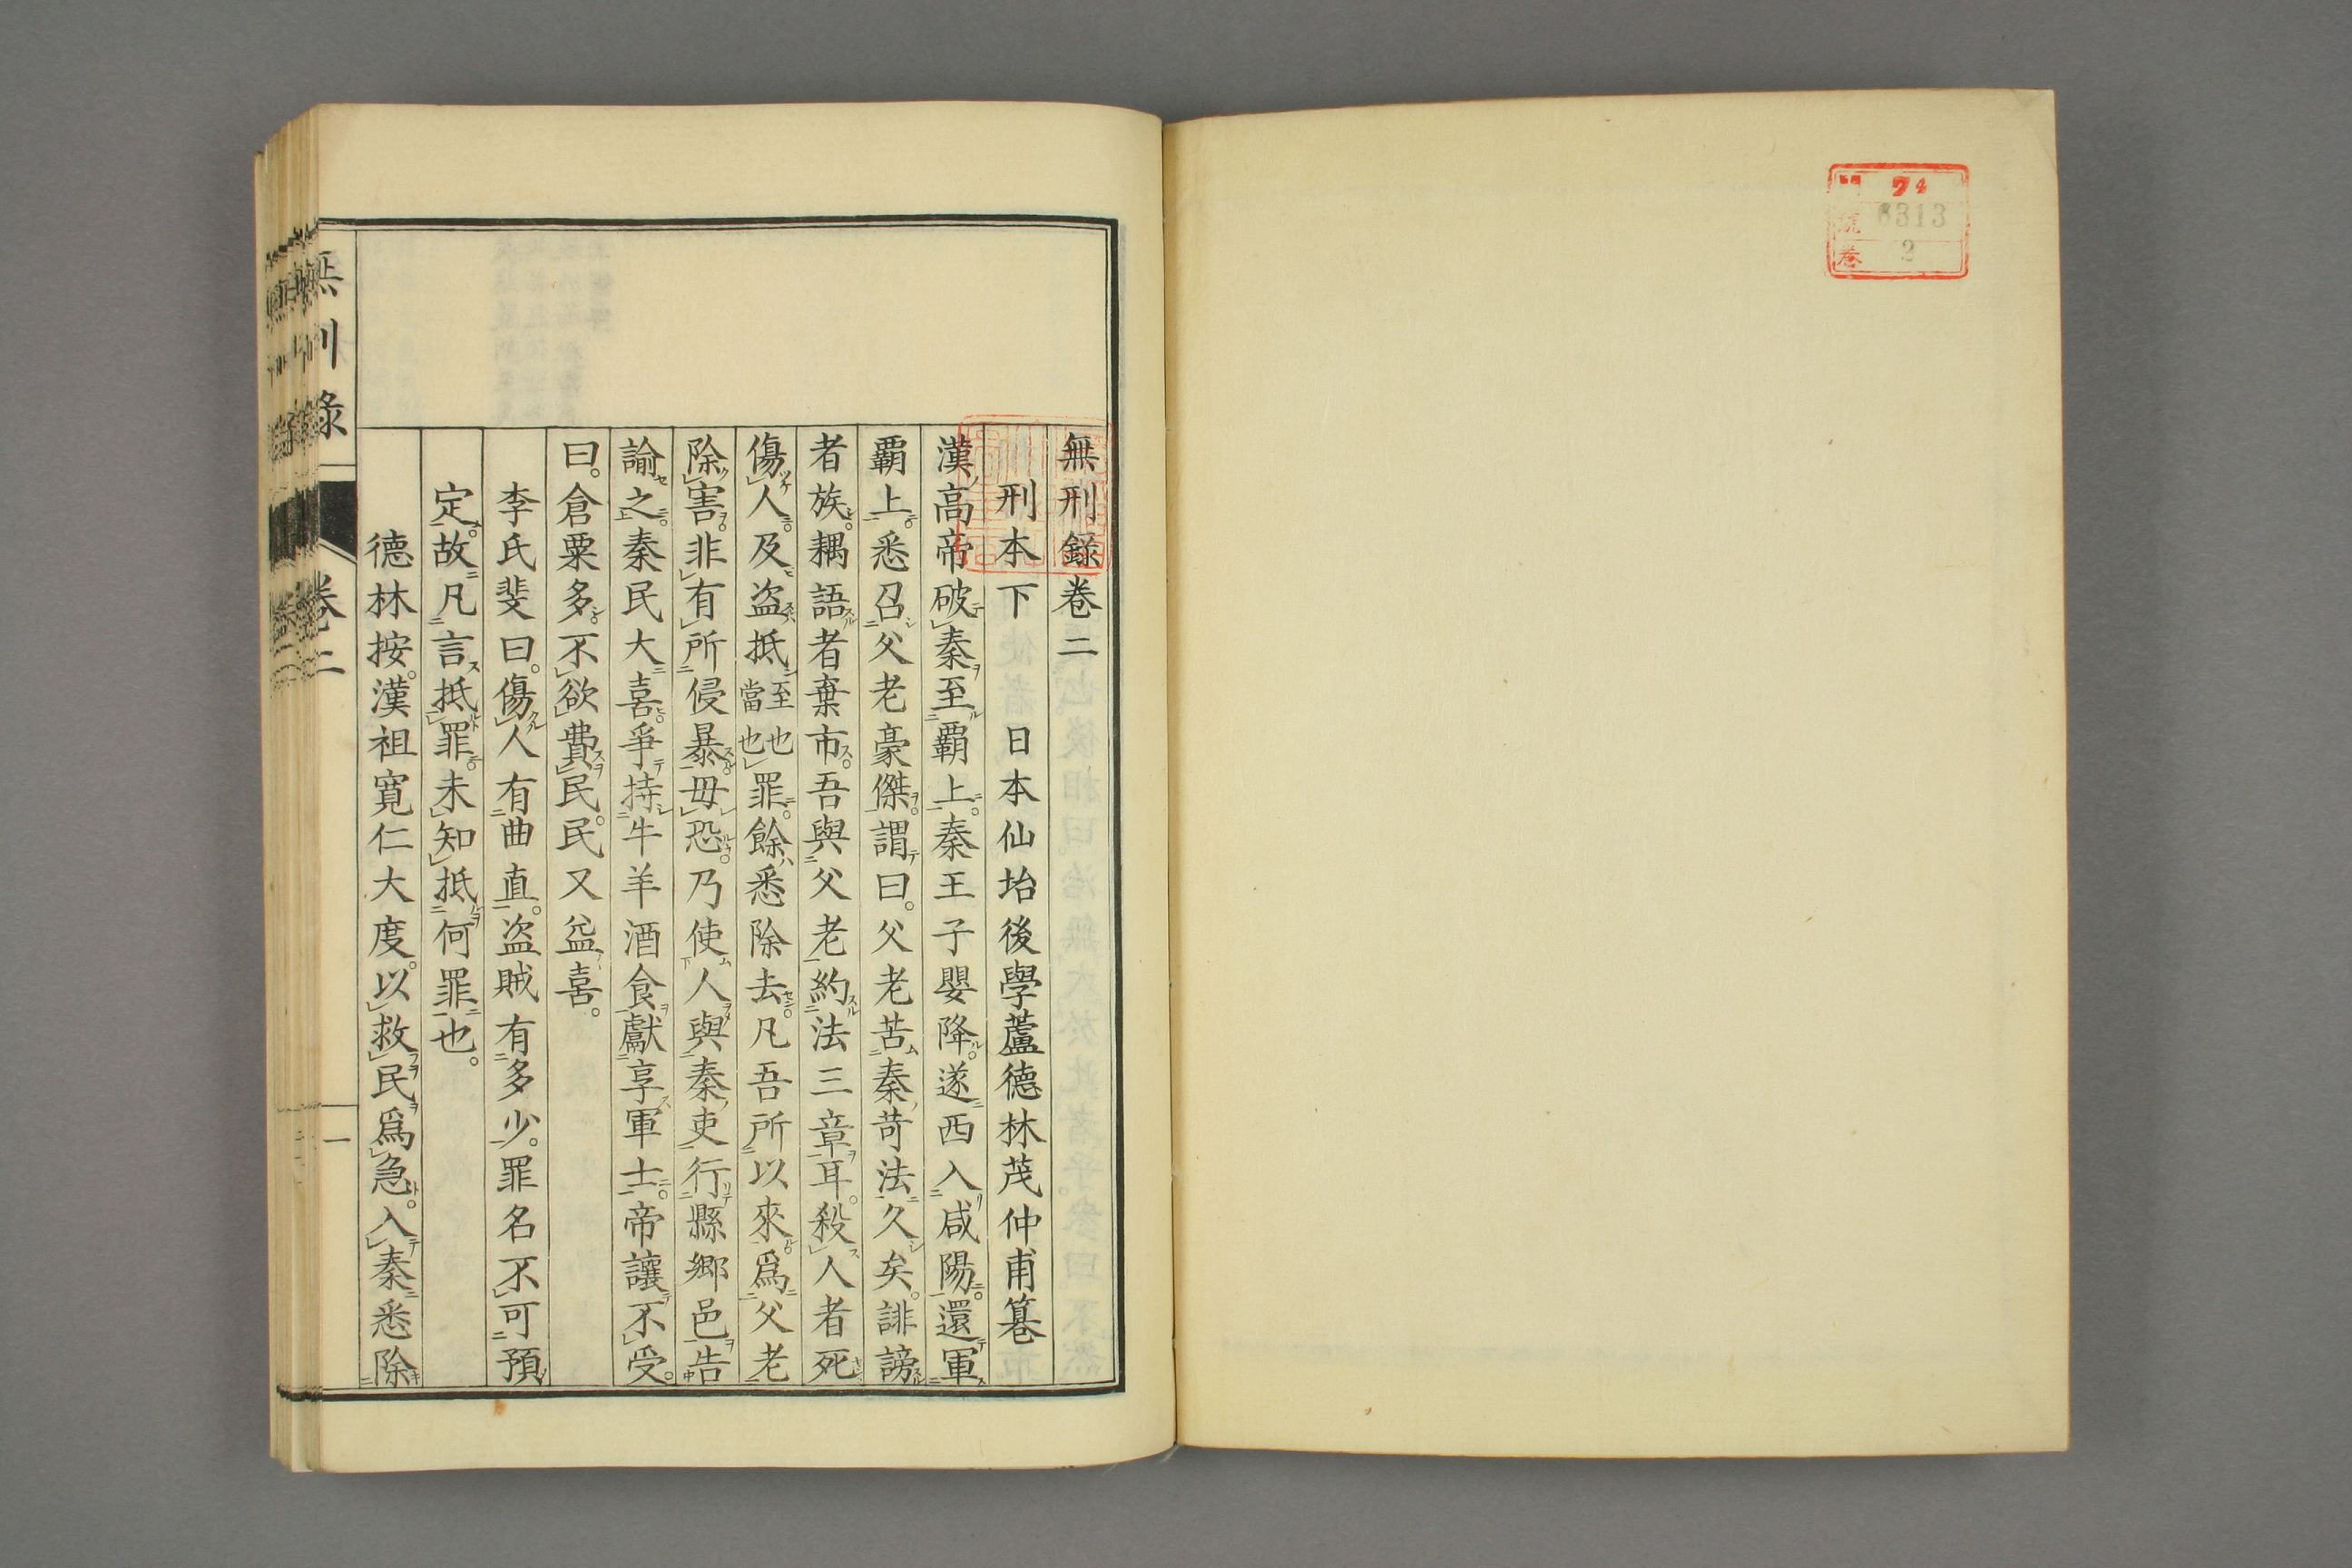 74
號 8313
卷 2
無刑錄卷二
刑本下　日本仙坮後學蘆德林茂仲甫篹
漢高帝破秦至覇上。秦王子嬰降。遂西入咸陽。還軍
覇上。悉召父老豪傑。謂曰。父老苦秦苛法久矣。誹謗
者族。耦語者棄市。吾與父老約法三章耳。殺人者死
傷人。及盗抵至也當也罪。餘悉除去。凡吾所以來。爲父老
除害。非有所侵暴。毋恐。乃使人與秦吏行縣鄉邑告
諭之。秦民大喜。爭持牛羊酒食獻享軍士。帝讓不受。
曰。倉粟多。不欲費民。民又益喜。
李氏斐曰。傷人有曲直。盗賊有多少。罪名不可預
定。故凡言抵罪。未知抵何罪也。
德林按。漢祖寬仁大度。以救民爲急。入秦悉除
無刑錄　卷二　一